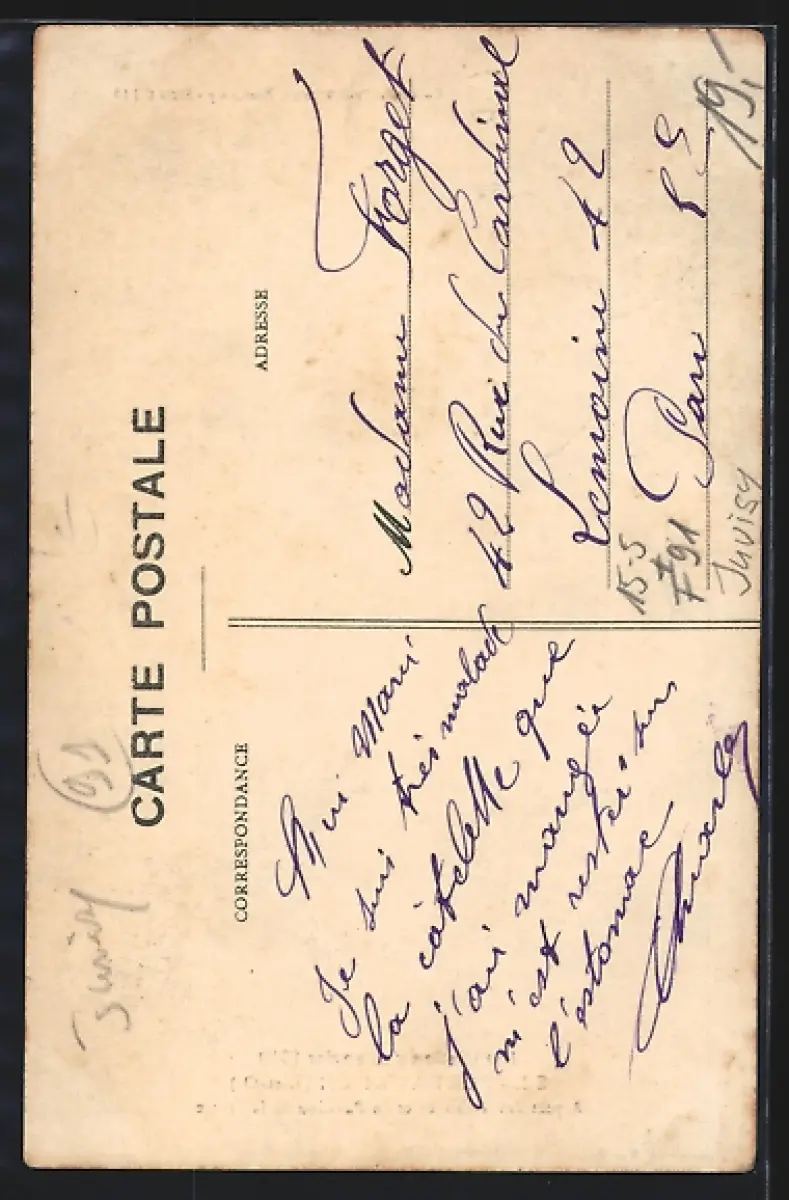 CARTE POSTALE
CORRESPONDANCE
ADRESSE
Juvisy
91
Mari
Je suis très malade
la côtelette que
j'ai mangée
m'est restée sur
l'estomac
Charles
Madame Forget
42 Rue du Cardinal
Lemoine 42
Paris
19,-
15-5
F 91
Juvisy